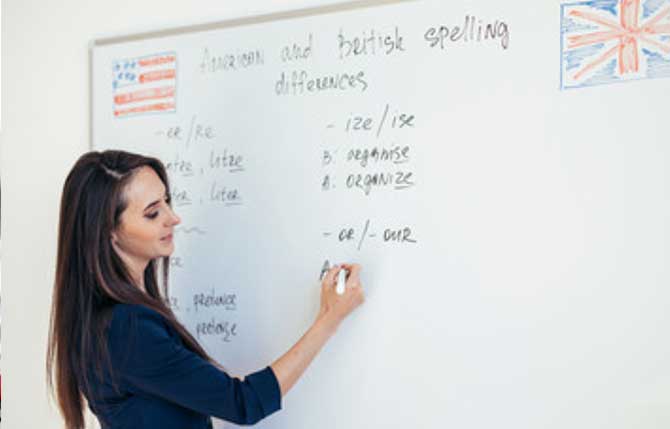 American and British spelling
differences
- er/re
litre
liter
pretence
pretense
- ize/ise
B: organise
A: organize
- or/-our
A